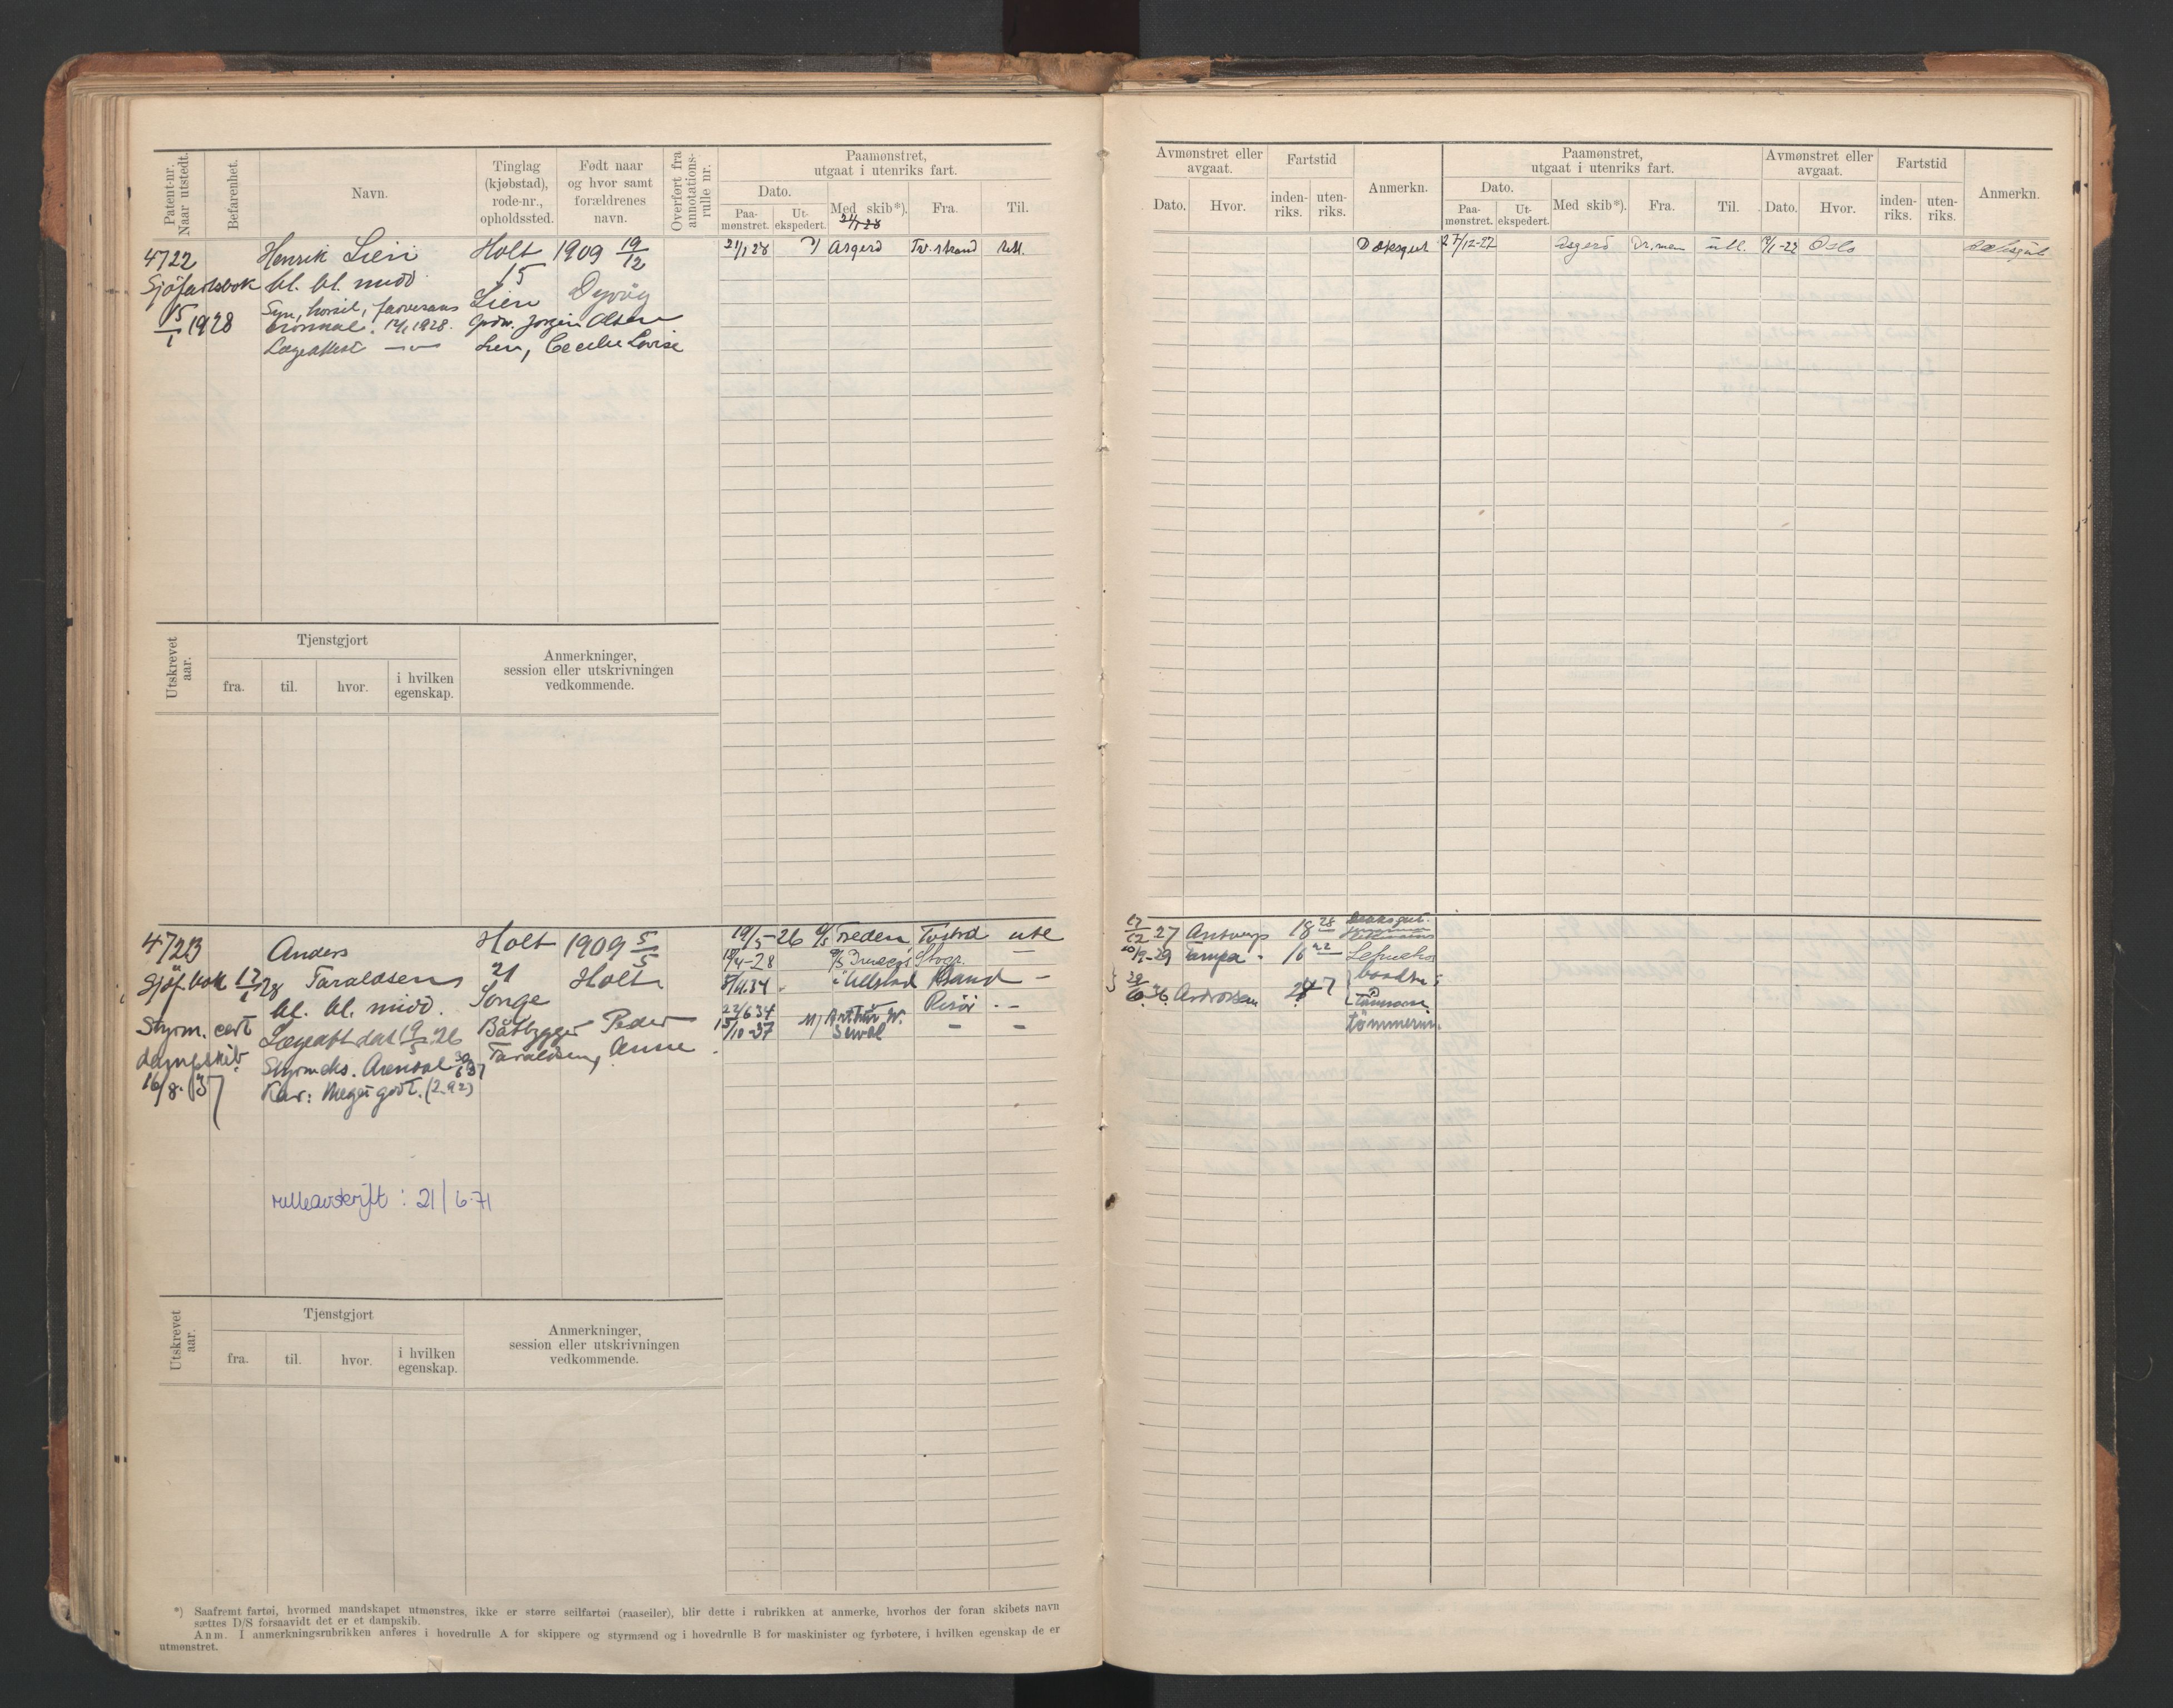 Patent-nr. Naar utstedt.
Befarenhet.
Navn.
Tinglag (kjøbstad), rode-nr., opholdssted.
Født naar og hvor samt forældrenes navn.
Overført fra annotations-rulle nr.
Paamønstret, utgaat i utenriks fart.
Dato.
Paa-mønstret.
Ut-ekspedert.
Med skib*).
Fra.
Til.
Avmønstret eller avgaat.
Dato.
Hvor.
Fartstid
inden-riks.
uten-riks.
Anmerkn.
Paamønstret, utgaat i utenriks fart.
Dato.
Paa-mønstret.
Ut-ekspedert.
Med skib*).
Fra.
Til.
Avmønstret eller avgaat.
Dato.
Hvor.
Fartstid
inden-riks.
uten-riks.
Anmerkn.
4722 Henrik Lien Holt 1909 19/12 21/1 28 Asgerd Tv.strand utl.
Dæksgut 27/12-27 Asgerd Dr.men utl. Oslo Dæksgut
Sjöfartsbok bl. bl. midd. 15
15/1 1928 Syn, hørsel, farvesans Lien Dypvåg
normal. 12/1 1928. Jørgen Olsen
Lægeattest Lien, Cecilie Lovise
Utskrevet aar.
Tjenstgjort
fra.
til.
hvor.
i hvilken egenskap.
Anmerkninger, session eller utskrivningen vedkommende.
4723 Anders Holt 1909 5/5 19/5-26 Tvstrd utl
17/12 27 Antwerp 18 28
Sjöf.bok 17/1 28 Taraldsen 21 Holt 18/4-28
Tampa 16 22
bl. bl. midd. Songe 34 Ullstad
36 Ardrossan
22/6 34 Risör
Styrm. cert Lægeatt dat 19/5 26 Båtbygger Peder 15/10-37 M/ Arthur W. Sewal
tömmerm.
dampskib Styrm.eks. Arendal Taraldsen, Anne
16/8. 37 Kar: Meget godt. (2.92)
rulleavskrift : 21/6-71
Utskrevet aar.
Tjenstgjort
fra.
til.
hvor.
i hvilken egenskap.
Anmerkninger, session eller utskrivningen vedkommende.
*) Saafremt fartøi, hvormed mandskapet utmønstres, ikke er større seilfartøi (raaseiler), blir dette i rubrikken at anmerke, hvorhos der foran skibets navn
sættes D/S forsaavidt det er et dampskib.
Anm. I anmerkningsrubrikken anføres i hovedrulle A for skippere og styrmænd og i hovedrulle B for maskinister og fyrbøtere, i hvilken egenskap de er
utmønstret.